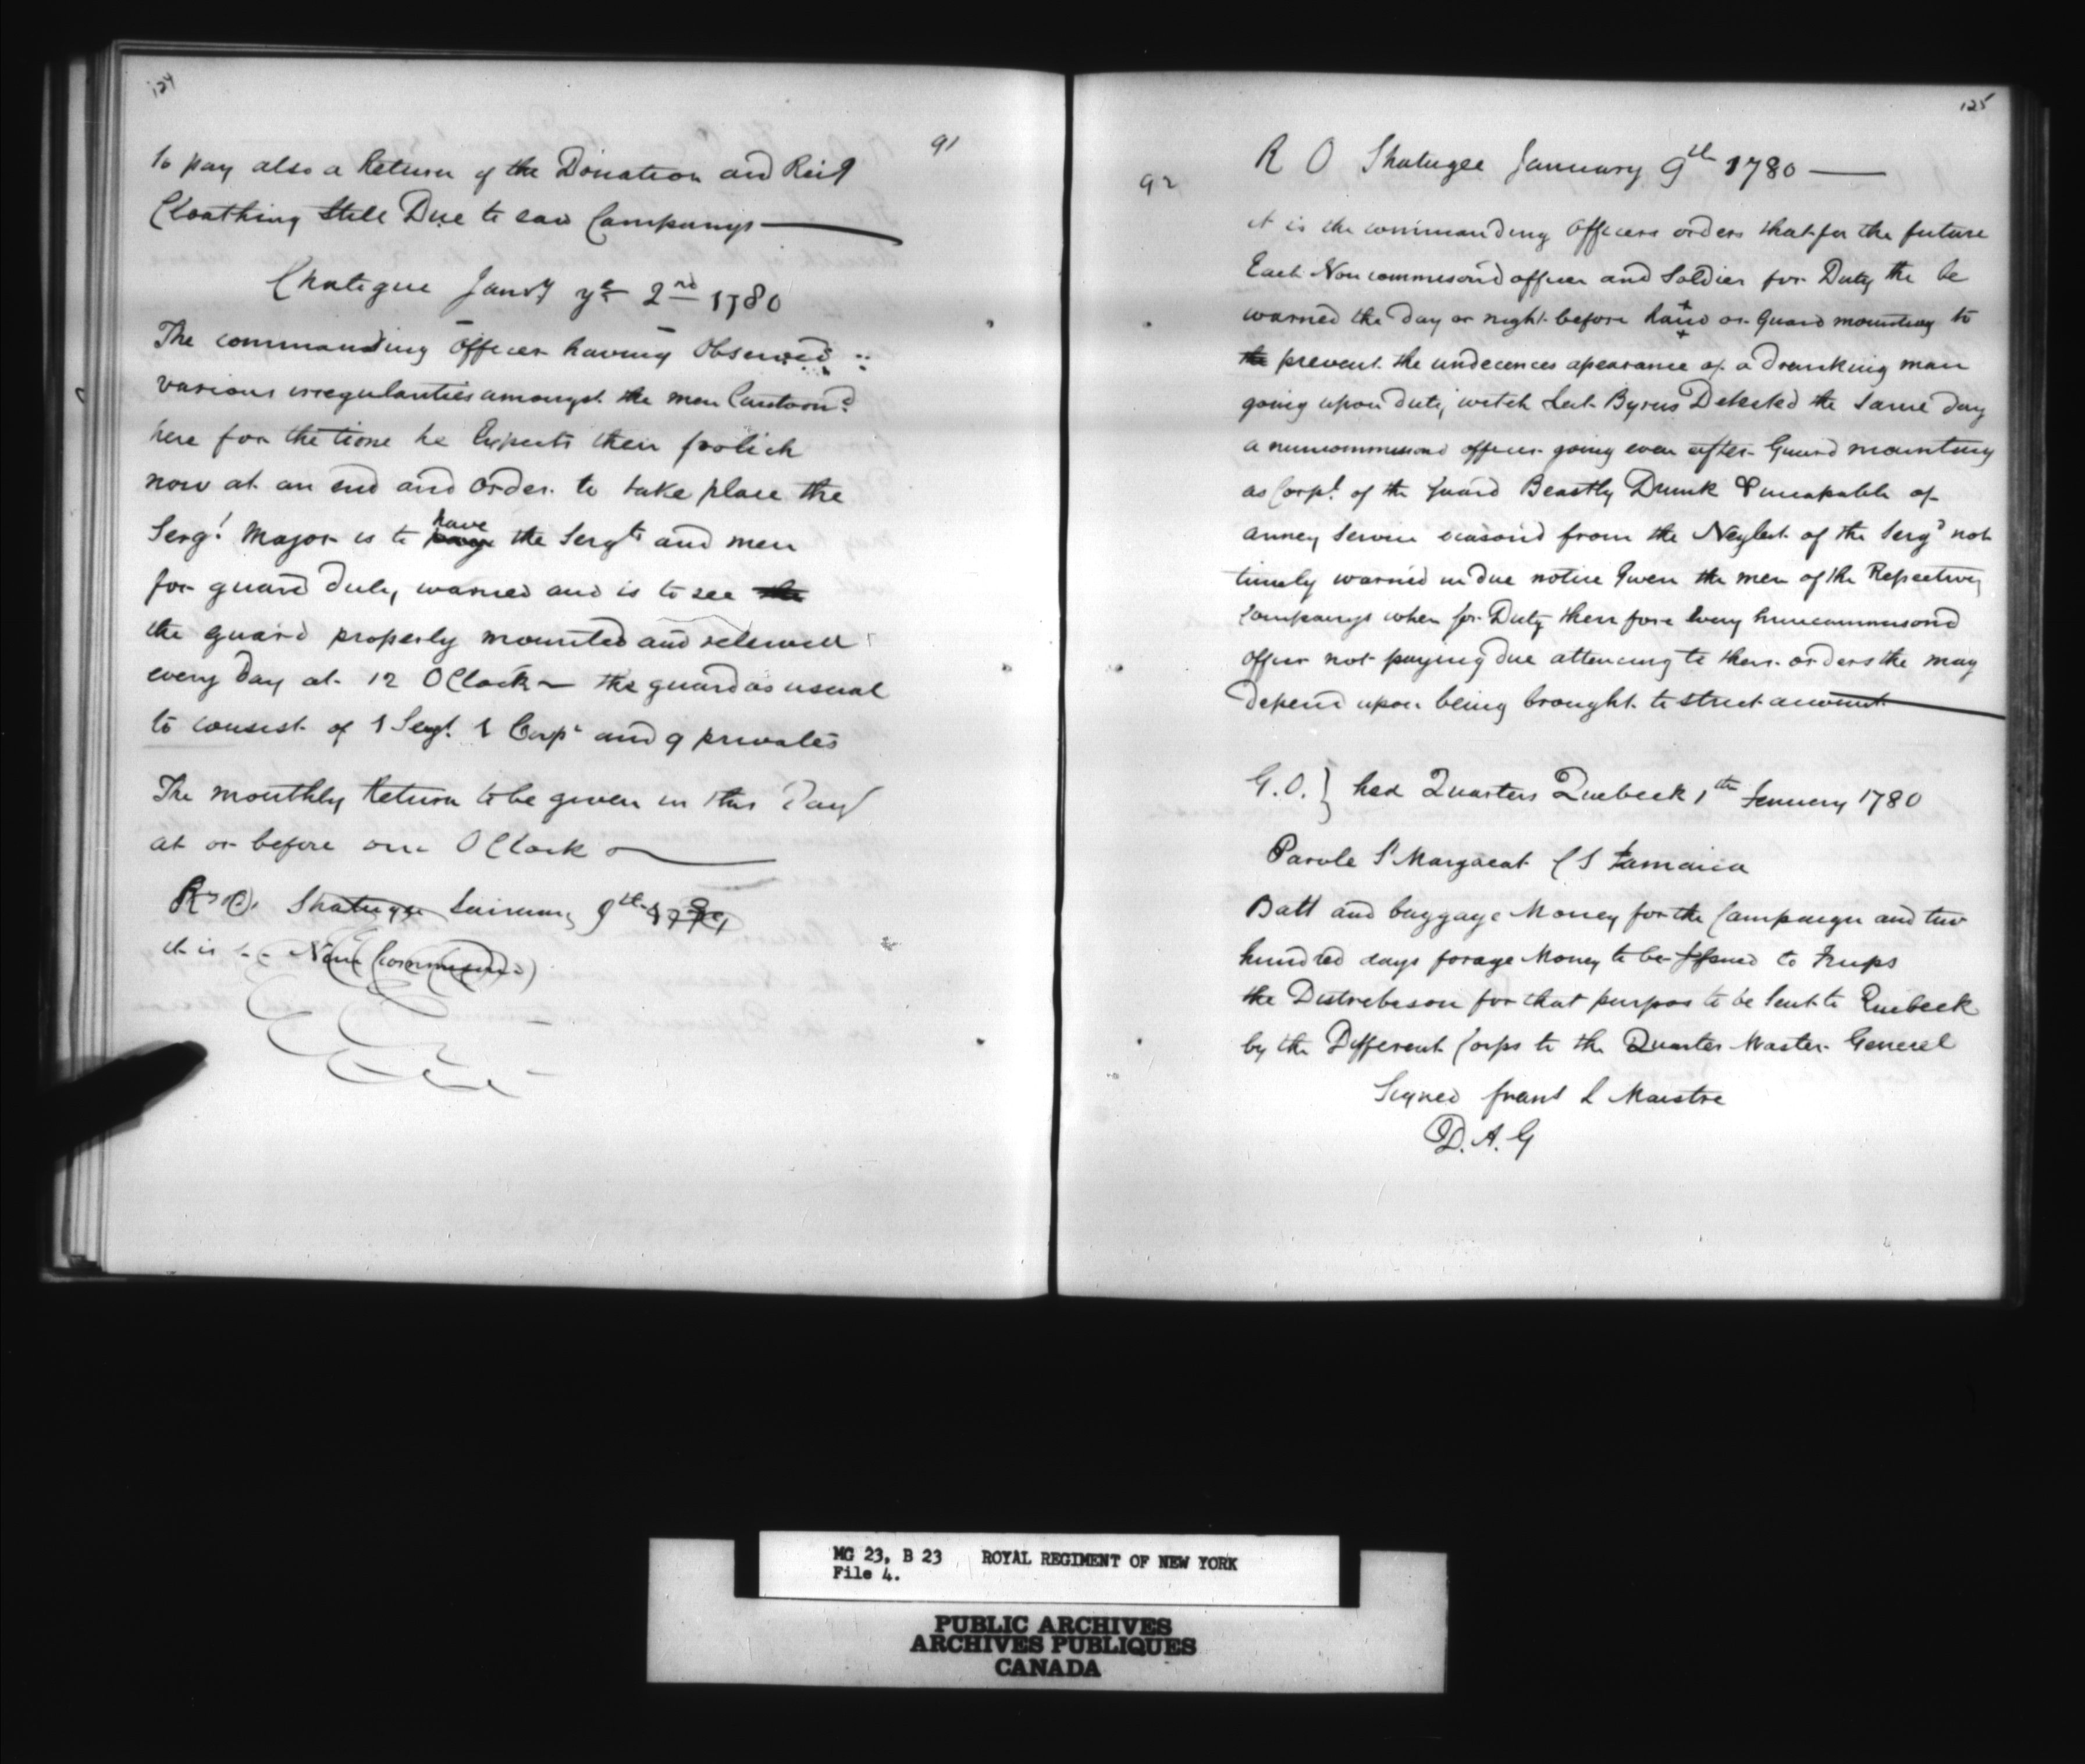 124
91
to pay also a Return of the Donation and Reigt
Cloathing Still Due to sad Companys
Chatigue Janry ye 2nd 1780
The commanding Officer having Observed
various irregularities amongst the men Cantoond
here for the time he Expects their frolich
now at an end and Order to take place the
Sergt Major is to have the Sergts and men
for guard duty warned and is to see the
the guard properly mounted and relieved
every Day at 12 OClock the guard as usual
to consist of 1 Sergt 1 Corpl and 9 privates
The monthly Return to be given in this Day
at or before one OClock
R O Shatugee 9th
it is Non Commisond
125
92
R O Shatugee January 9th 1780
it is the commanding Officers orders that for the future
Each Noncommisond officer and Soldier for Duty the be
warned the day or night before hand or Guard mounting to
the prevent the undecences apearance of a drunking man
going upon duty witch Leut Byrns Detected the same day
a nuncommissond officer going even after Guard mounting
as Corpl of the Guard Beastly Drunk & uncapable of
anney Servin from the Neglect of the Sergt not
timely warned in due notice Given the men of the Repsective
Companys when for Duty therefore Every nuncommisond
officer not paying due attencing to these orders the may
depend upon being brought to strict account
G.O. } hed Quarters Quebeck 1th Jenuery 1780
Parole St Margaeat C S Jamaica
Batt and baggage Money for the Campaign and two
hundred days forage Money to be Issued to Trups
the Distrebeson for that purpos to be Sent to Quebeck
by the Different Corps to the Quarter Master Generel
Signed frans L Maistre
D. A. G
MG 23, B 23 ROYAL REGIMENT OF NEW YORK
File 4.
PUBLIC ARCHIVES
ARCHIVES PUBLIQUES
CANADA